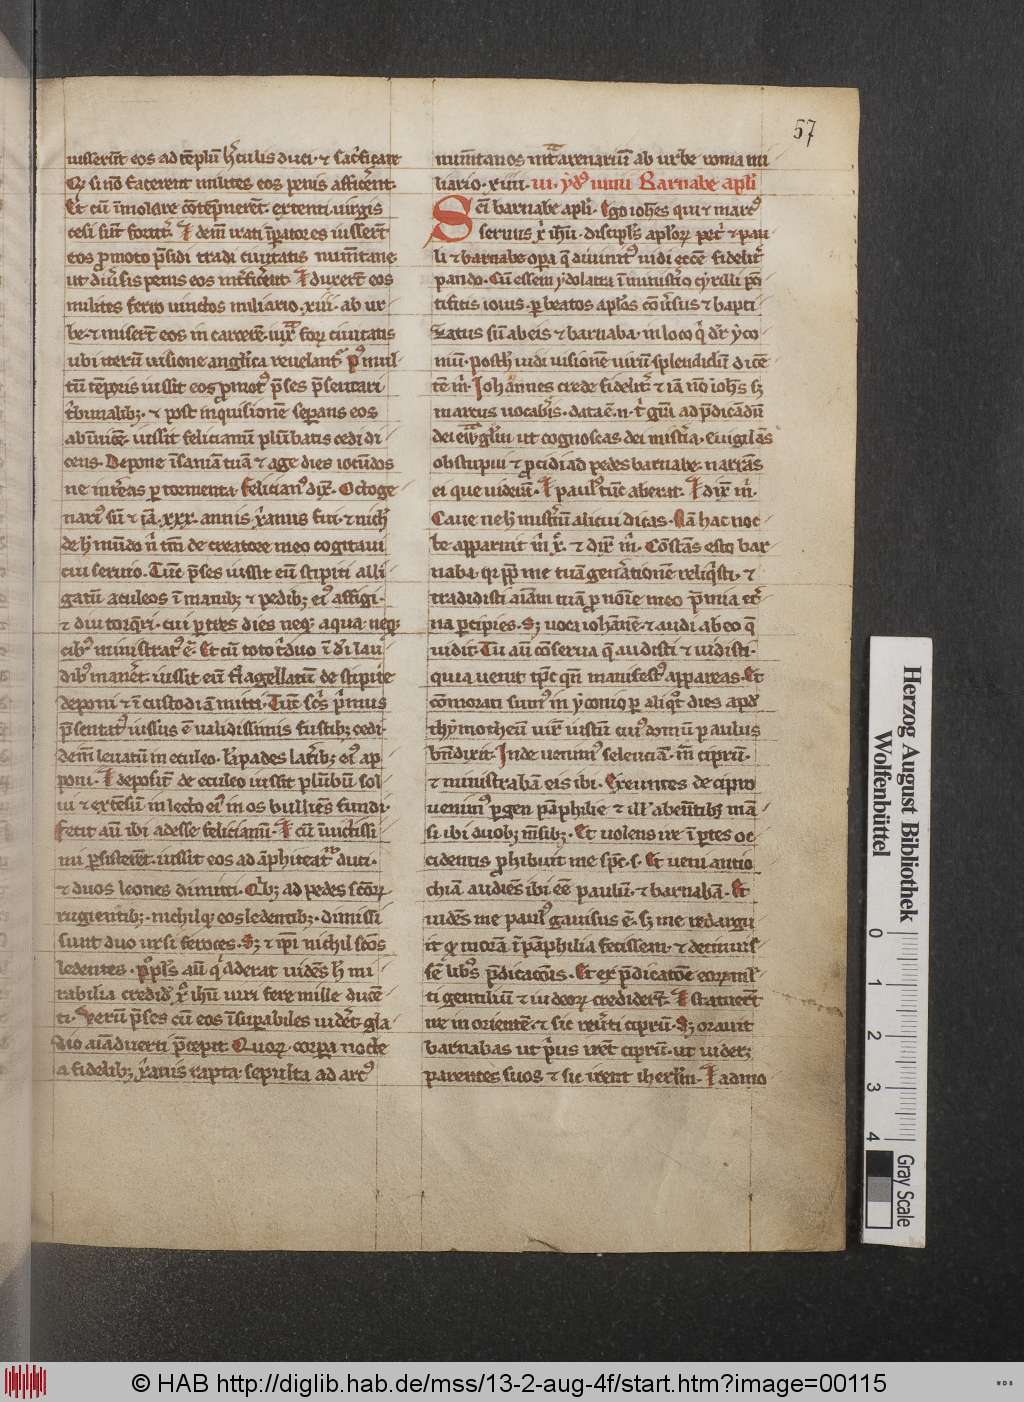 57
iusserūt eos ad tēplū h̓culis duci · ⁊ sac̓ficare
Qꝫ si nō facerent milites eos penis affic̓ent ·
Et cū ī molare cōtēp̄nerēt · extenti uirgis
cesi sūt fortit̓ · Idem irati īpatores iusserūt
eos p̱moto p̄sidi tradi ciuitatis numītane
ut diu̓sis penis eos int̓fic̓ent · Et duxerūt eos
milites ferro uinctos miliario · xiii · ab ur
be · ⁊ miserūt eos in carcerē · iuxͣ forū ciuitatis
ubi iterū uisione anglica reuelantᷣ Pꝰ mul
tū tēporis iussit eos p̱motꝰ p̄ses p̄sentari
t̓bunalibꝫ · ⁊ post inquisitionē sepans eos
abinuicē · iussit felicianū plūbatis cedi di
cens · Depone īsaniā tuā ⁊ age dies iocūdos
ne int̓eas p tormenta · felicianꝰ dix̄ · Octoge
narꝰ sū ⁊ iā · xxx · annis xp̄anus fui · ⁊ nich̓
de h̓ mūdo n̓ tm̄ de creatore meo cogitaui
cui seruio · Tūc p̄ses iussit eū stipiti alli
gatū aculeos ī manibꝫ ⁊ pedibꝫ eiꝰ affigi ·
⁊ diu torq̄ri · cui p tres dies neqꝫ aqua neqꝫ
cibꝰ ministratꝰ ē · Et cū toto t̓duo ī dī lau
dibꝰ manēt · iussit eū flagellatū de stipite
deponi ⁊ ī custodiā mitti · Tūc scs̄ p̓mus
p̄sentatꝰ iussus ē ualidissimis fustibꝫ cedi ·
dem̄ leuatū in eculeo · lāpades latibꝫ eiꝰ ap
poni · Et depositū de eculeo iussit plūbū sol
ui ⁊ extēsū in lecto eiꝰ in os bulliēs fundi ·
fecit aū ibi adesse felicianū · Et cū inuictissi
mi psisterēt · iussit eos ad āphiteatrū duci ·
⁊ duos leones dimitti · Qibꝫ ad pedes scōꝝ
rugientibꝫ · nichilqꝫ eos ledentibꝫ · dimissi
sunt duo ursi feroces · Sꝫ ⁊ ipi nichil scōs
ledentes · Pplꝰs aū q̓ aderat uidēs h̓ mi
rabilia crediđ x̓ ihū uiri fere mille ducē
ti · Verū p̄ses cū eos īsupabiles uidēt gla
dio aīaduerti p̄cepit · Quoꝝ corpa nocte
a fidelibꝫ xp̄anis rapta · sepulta ad arcꝰ
numītanos intͣ arenariū ab urbe roma mi
liario · xiiii · iii · ydꝰ iunii Barnabe apli
Sci barnabe apli · Ego iohēs qui ⁊ marcꝰ
seruus x̓ ihū · discipls̄ aploꝝ petͥ ⁊ pau
li ⁊ barnabe opa q̄ diuinitꝰ uidi eccē fidelit̓
pando · Cū essem ydolatra ī ministrō cyrilli pō
tificis iouis · p beatos aplōs cōu̓sus ⁊ bapti
zatus sū ab eis ⁊ barnaba · in loco q̓ dr̄ yco
niū · postꝫ uidi uisionē uirū splendidū dicē
tē m̓ · Johannes crede fidelit̓ ⁊ iā nō iohs̄ sꝫ
marcus uocab̓is · data ē · n · t̓ gr̄a ad p̄dicādū
dei ewͣgl̄iū ut cognoscas dei mist̓ia · Euigilās
obstupui ⁊ p̱cidi ad pedes barnabe · narrās
ei que uiderā · Et paulꝰ tūc aberat · Et dix̄ m̓ ·
Caue ne h̓ mist̓iū alicui dicas · Nā hac noc
te apparuit m̓ x̓ · ⁊ dix̄ m̓ · Cōstās esto bar
naba · qꝛ pp̄ me tuā gen̓ationē reliq̓sti · ⁊
tradidisti aīam tuā p̱ noīe meo p̄mia et̓
na pcipies · Sꝫ uoca iohānē · ⁊ audi ab eo q̄
uidit · Tu aū cōserua q̄ audisti ⁊ uidisti ·
quia ueniet tp̄c qn̄ manifestꝰ appareas · Et
cōmorati sumꝰ in yconio p aliqͦt dies apđ
thymotheū uirū iustū cuiꝰ domū paulus
bn̄dixit · Inde uenimꝰ seleuciā · in̄ ciprū ·
⁊ ministrabā eis ibi · Exeuntes de cipro
uenimꝰ pgen pāphilie ⁊ ill̓ abeūtibꝫ mā
si ibi duobꝫ mēsibꝫ · Et uolens ire ī ptes oc
cidentis p̱hibuit me spc̄ · s · Et ueni antio
chiā audiēs ibi eē paulū · ⁊ barnabā · Et
uidēs me paulꝰ gauisus ē · sꝫ me redargu
it qꝫ morā ī pāphilia fecissem · ⁊ detinuis
sē libꝰs p̄dicacōis · Et ex p̄dicatoē eoꝝ mul
ti gentiliū ⁊ iudeoꝝ crediderūt · Et statuerūt
ire in orientē · ⁊ sic reu̓ti ciprū · Sꝫ orauit
barnabas ut p̓us irēt ciprū · ut uiderꝫ
parentes suos ⁊ sic irent iherlm̄ · Et admo
Herzog August Bibliothek
Wolfenbüttel
0 1 2 3 4
Gray Scale
© HAB http://diglib.hab.de/mss/13-2-aug-4f/start.htm?image=00115
WDB